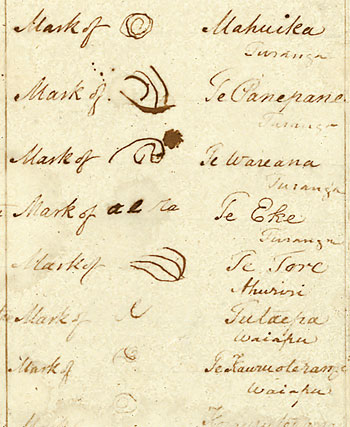 Mark of Mahuika
Turanga
Mark of Te Panepane
Turanga
Mark of Te Wareana
Turanga
Mark of a e ra Te Eke
Turanga
Mark of Te Tore
Ahuriri
Mark of Tutaepa
Waiapu
Mark of
Waiapu
Mark of